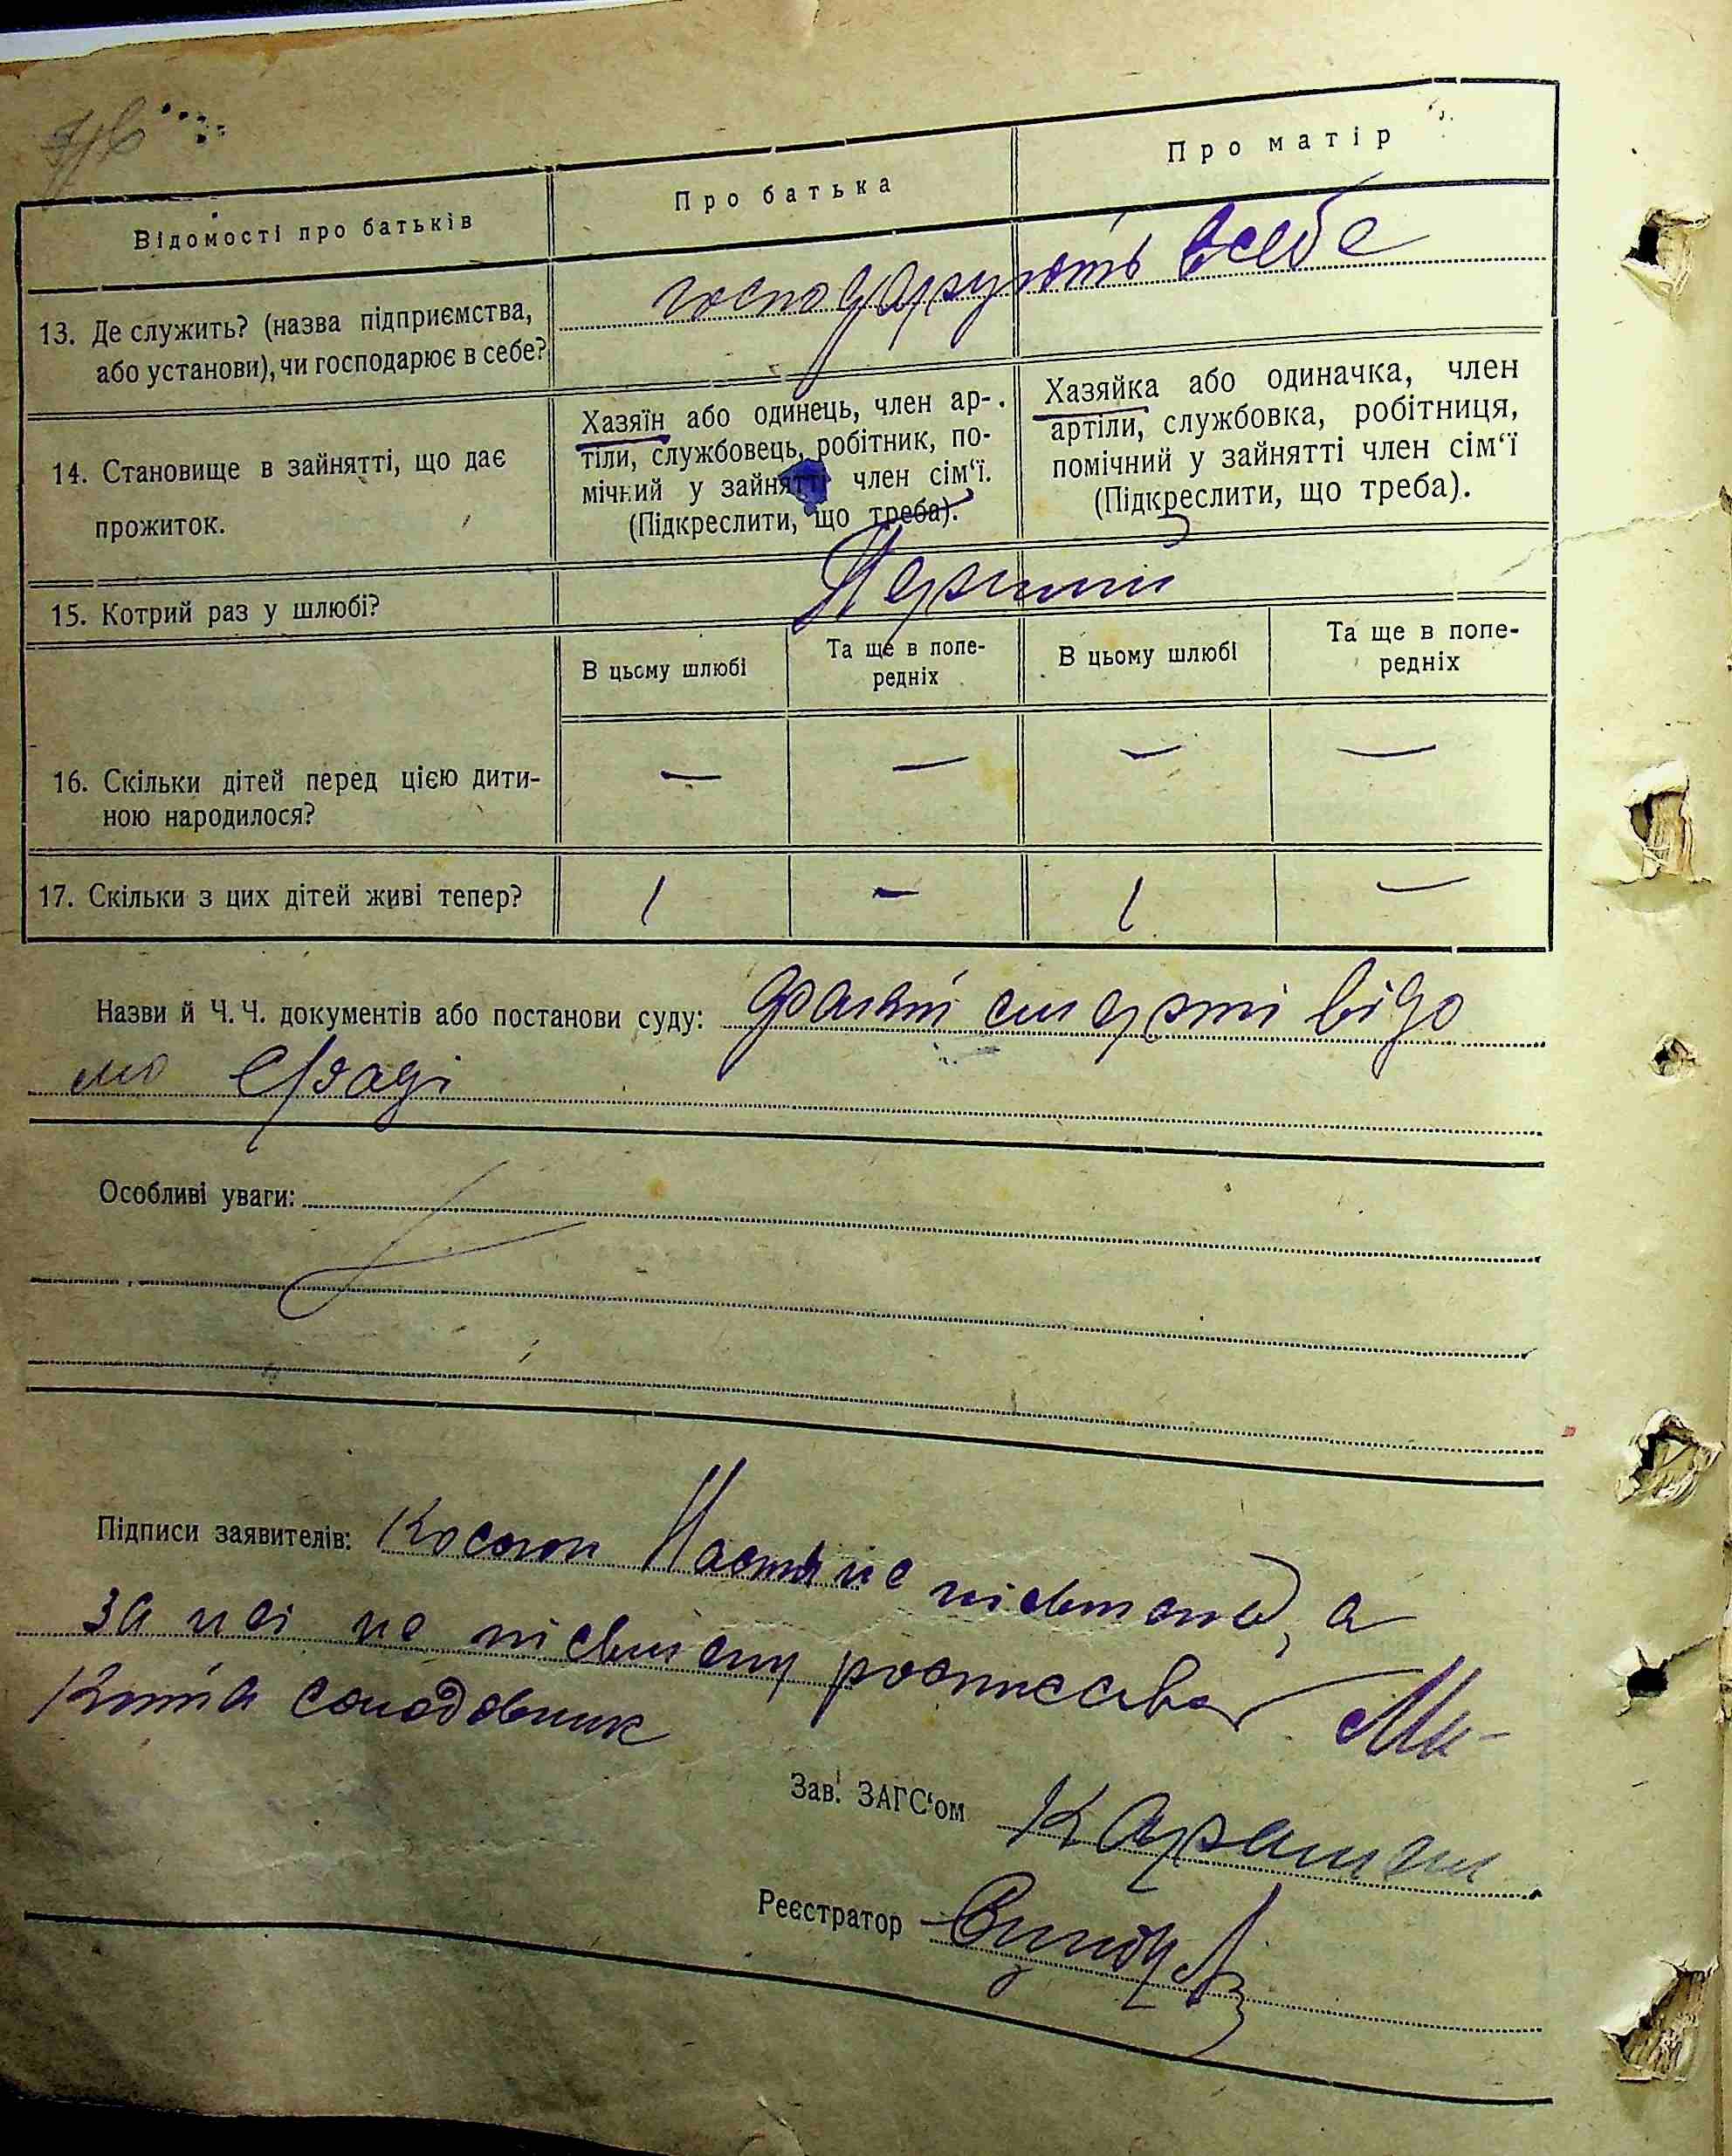 Відомості про батьків
Про батька
Про матір
13. Де служить? (назва підприємства,
або установи), чи господарює в себе?
господарують в себе
14. Становище в зайнятті, що дає
прожиток.
Хазяїн або одинець, член ар-
тіли, службовець, робітник, по-
мічний у зайнятті член сім‘ї.
(Підкреслити, що треба).
Хазяйка або одиначка, член
артіли, службовка, робітниця,
помічний у зайнятті член сім‘ї
(Підкреслити, що треба).
15. Котрий раз у шлюбі?
Перший
В цьому шлюбі
Та ще в попе-
редніх
В цьому шлюбі
Та ще в попе-
редніх
16. Скільки дітей перед цією дити-
ною народилося?
— — — —
17. Скільки з цих дітей живі тепер?
1 — 1 —
Назви й Ч. Ч. документів або постанови суду: факт смерті відо
мо с/раді
Особливі уваги:
Підписи заявителів: Настя не а
за неї не росписався Ми-
кита Солодовник
Зав. ЗАГС‘ом
Реєстратор